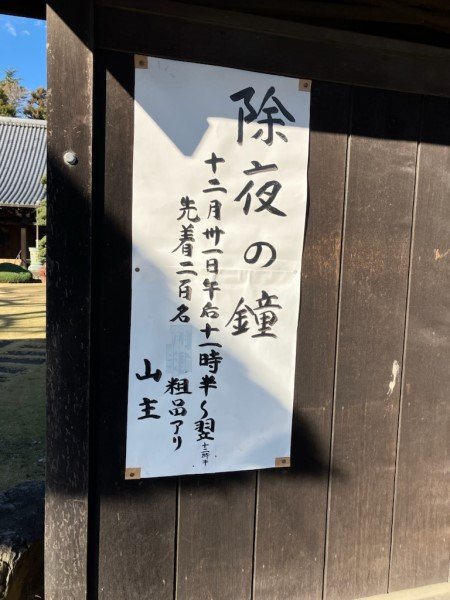 除夜の鐘
十二月卅一日午后十一時半〜翌
先着二百名 粗品アリ
山主